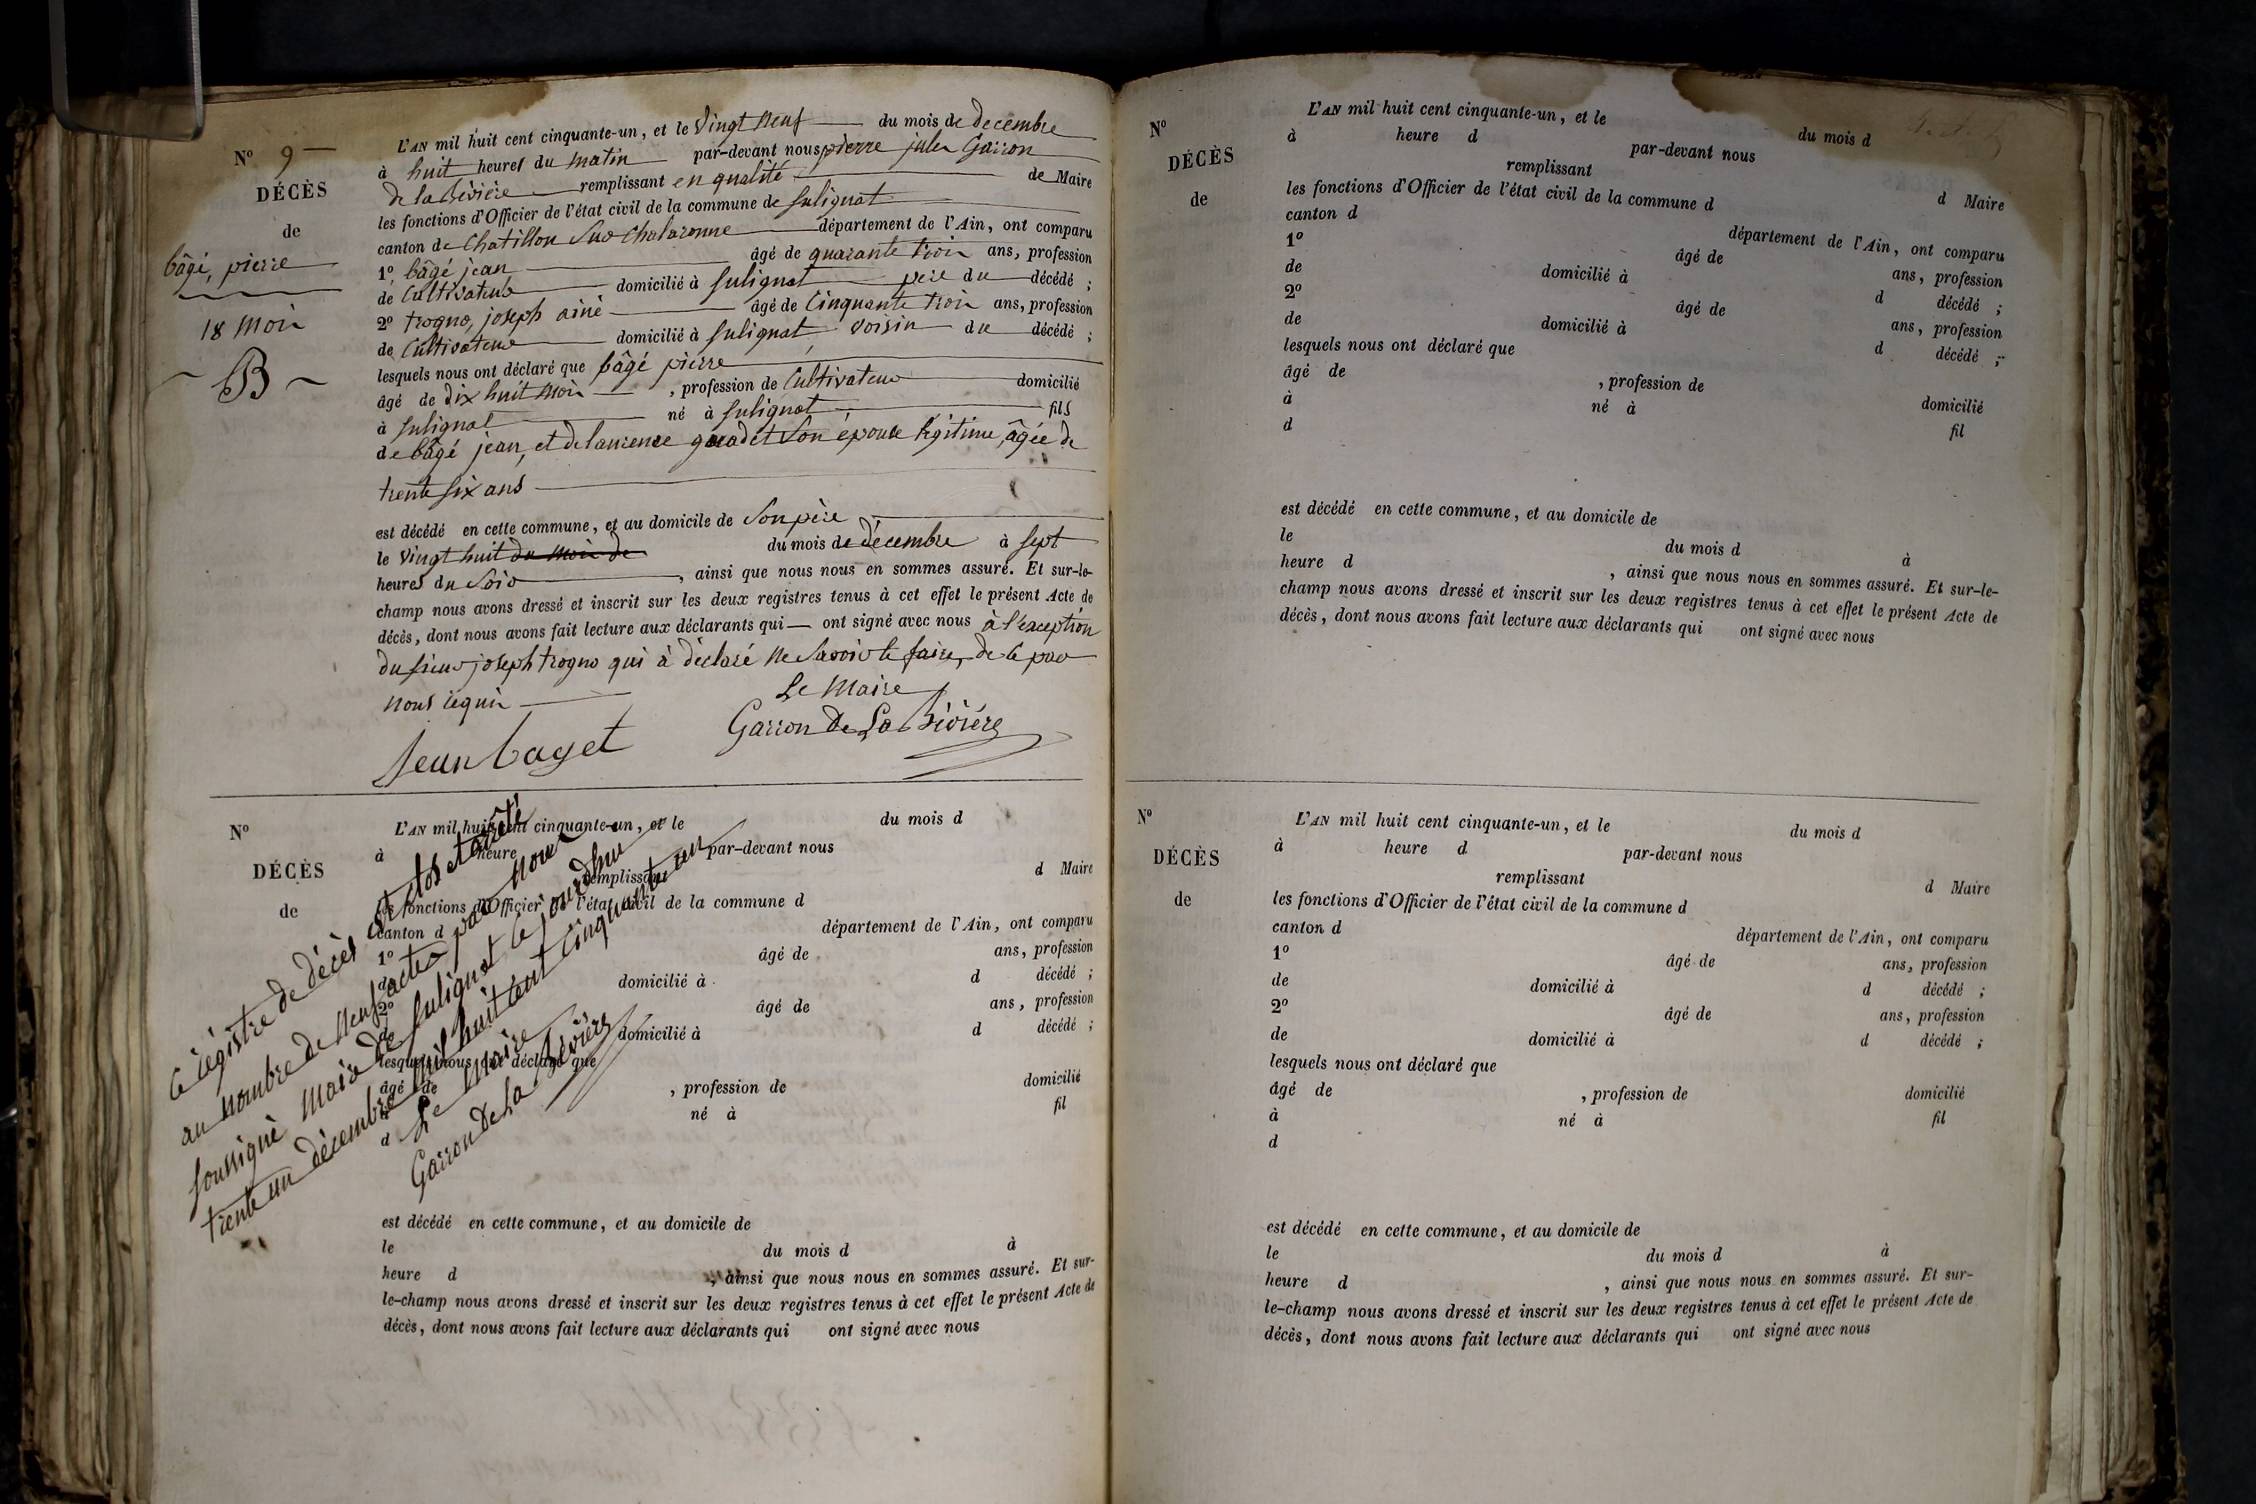 N° 9
DÉCÈS
de
bâgé, pierre
18 mois
B
L'AN mil huit cent cinquante-un, et le vingt neuf du mois de decembre
à huit heures du matin par-devant nous pierre jules Garron
de la Bévière remplissant en qualité de Maire
les fonctions d'Officier de l'état civil de la commune de Sulignat
canton de Chatillon Sur Chalaronne département de l'Ain, ont comparu
1° bâgé jean âgé de quarante trois ans, profession
de Cultivateur domicilié à Sulignat pere du décédé ;
2° trogno, joseph ainé âgé de Cinquante trois ans, profession
de Cultivateur domicilié à Sulignat, voisin du décédé ;
lesquels nous ont déclaré que bâgé pierre
âgé de dix huit mois , profession de Cultivateur domicilié
à Sulignat né à Sulignat fils
de bâgé jean, et de laurence son épouse légitime, âgée de
trente six ans
est décédé en cette commune, et au domicile de Son père
le vingt huit du mois de du mois de décembre à sept
heures du Soir , ainsi que nous nous en sommes assuré. Et sur-le-
champ nous avons dressé et inscrit sur les deux registres tenus à cet effet le présent Acte de
décès, dont nous avons fait lecture aux déclarants qui ont signé avec nous à l'exception
du sieur joseph trogno qui à déclaré ne Savoir le faire, de ce par
nous requis
Le Maire
Garron De La Bévière
Jean baget
N°
DÉCÈS
de
L'AN mil huit cent cinquante-un, et le du mois d
à heure par-devant nous
remplissant d Maire
les fonctions d'Officier de l'état civil de la commune d
canton d département de l'Ain, ont comparu
1° âgé de ans, profession
de domicilié à d décédé ;
2° âgé de ans, profession
de domicilié à d décédé ;
lesquels nous ont déclaré que
âgé de , profession de domicilié
à né à fil
d
est décédé en cette commune, et au domicile de
le du mois d à
heure d , ainsi que nous nous en sommes assuré. Et sur-
le-champ nous avons dressé et inscrit sur les deux registres tenus à cet effet le présent Acte de
décès, dont nous avons fait lecture aux déclarants qui ont signé avec nous
Ce régistre de décès est clos et arrêté
au nombre de Neuf actes par nous
soussigné Maire de Sulignat ce jourdhui
trente un décembre mil huit cent cinquante un
Le Maire
Garron De La Bévière
N°
DÉCÈS
de
L'AN mil huit cent cinquante-un, et le du mois d
à heure d par-devant nous
remplissant d Maire
les fonctions d'Officier de l'état civil de la commune d
canton d département de l'Ain, ont comparu
1° âgé de ans, profession
de domicilié à d décédé ;
2° âgé de ans, profession
de domicilié à d décédé ;
lesquels nous ont déclaré que
âgé de , profession de domicilié
à né à fil
d
est décédé en cette commune, et au domicile de
le du mois d à
heure d , ainsi que nous nous en sommes assuré. Et sur-le-
champ nous avons dressé et inscrit sur les deux registres tenus à cet effet le présent Acte de
décès, dont nous avons fait lecture aux déclarants qui ont signé avec nous
N°
DÉCÈS
de
L'AN mil huit cent cinquante-un, et le du mois d
à heure d par-devant nous
remplissant d Maire
les fonctions d'Officier de l'état civil de la commune d
canton d département de l'Ain, ont comparu
1° âgé de ans, profession
de domicilié à d décédé ;
2° âgé de ans, profession
de domicilié à d décédé ;
lesquels nous ont déclaré que
âgé de , profession de domicilié
à né à fil
d
est décédé en cette commune, et au domicile de
le du mois d à
heure d , ainsi que nous nous en sommes assuré. Et sur-
le-champ nous avons dressé et inscrit sur les deux registres tenus à cet effet le présent Acte de
décès, dont nous avons fait lecture aux déclarants qui ont signé avec nous